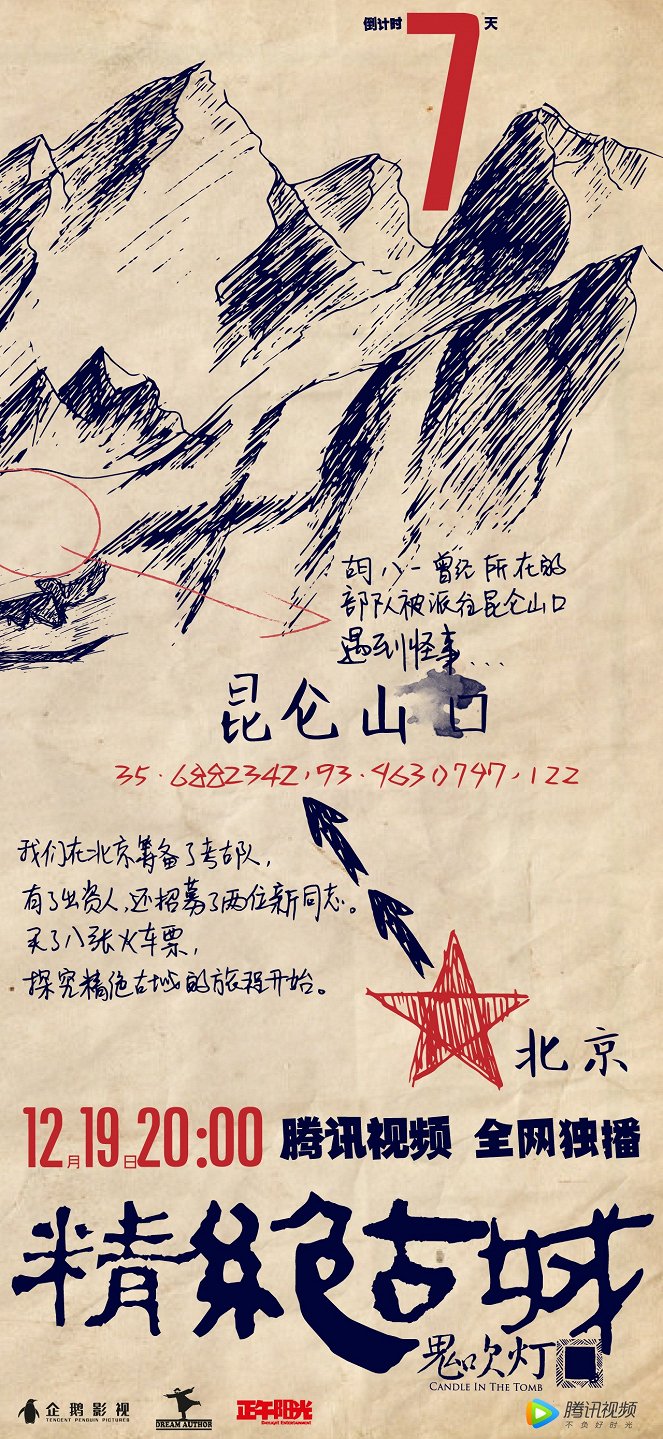 倒计时7天
胡八一曾经所在的
部队被派往昆仑山口
遇到怪事...
昆仑山口
35.6882342,93.4630747,122
我们在北京筹备了考古队,
有了出资人,还招募了两位新同志。
买了八张火车票,
探究精绝古城的旅程开始。
北京
12月19日20:00 腾讯视频 全网独播
精絶古城
鬼吹灯
CANDLE IN THE TOMB
企鹅影视
TENCENT PENGUIN PICTURES
DREAM AUTHOR
正午阳光
Daylight Entertainment
腾讯视频
不负好时光